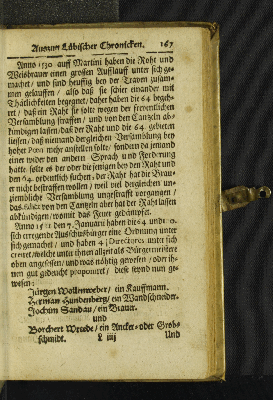 Auszug Lübischer Chronicken. 167
Anno 1530 auff Martini haben die Raht und
Weißbrauer einen grossen Aufflauff unter sich ge-
machet / und sind heuffig bey der Traven zusam-
men gelauffen / also daß sie schier einander mit
Thätlichkeiten begegnet / daher haben die 64 begeh-
ret / daß ein Raht sie solte wegen der freventlichen
Versamblung straffen / und von den Cantzeln ab-
kündigen lassen / daß der Raht und die 64. gebieten
liessen / daß niemand dergleichen Versamblung bey
hoher Poen mehr anstellen solte / sondern da jemand
einer wider den andern Sprach und Forderung
hatte solte es vor oder die jenigen bey den Raht und
den 64. ordentlich suchen: der Raht hat die Brau-
er nicht bestraffen wollen / weil viel dergleichen un-
ziembliche Versamblung ungestrafft vorgangen /
das aber von den Cantzeln aber hat der Raht lassen
abkündigen / womit das Feuer gedämpfet.
Anno 1531 den 7. Januarij haben die 64 und
sich erregende Ausschußbürger eine Ordnung unter
sich gemachet / und haben 4 Directores unter sich
creiret / welche unter ihnen allezeit als Bürgermeistere
oben angesessen / und was nöhtig gewesen / oder ih-
nen gut gedeucht proponiret / diese seynd nun ge-
wesen:
Jürgen Wollenweber / ein Kauffmann.
Herman Hundenberg / ein Wandschneider.
Jochim Sandau / ein Brauer.
und
Borchert Wrede / ein Ancker- oder Grob-
schmidt. L iiij Und